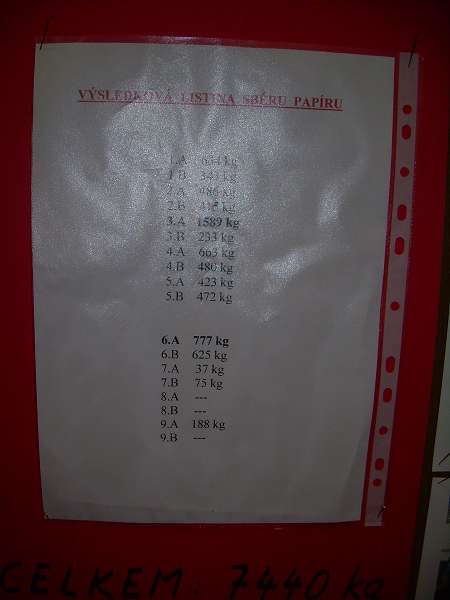 VÝSLEDKOVÁ LISTINA SBĚRU PAPÍRU
1.A 634 kg
1.B 343 kg
2.A 486 kg
2.B 415 kg
3.A 1589 kg
3.B 233 kg
4.A 663 kg
4.B 480 kg
5.A 423 kg
5.B 472 kg
6.A 777 kg
6.B 625 kg
7.A 37 kg
7.B 75 kg
8.A ---
8.B ---
9.A 188 kg
9.B ---
CELKEM: 7440 kg